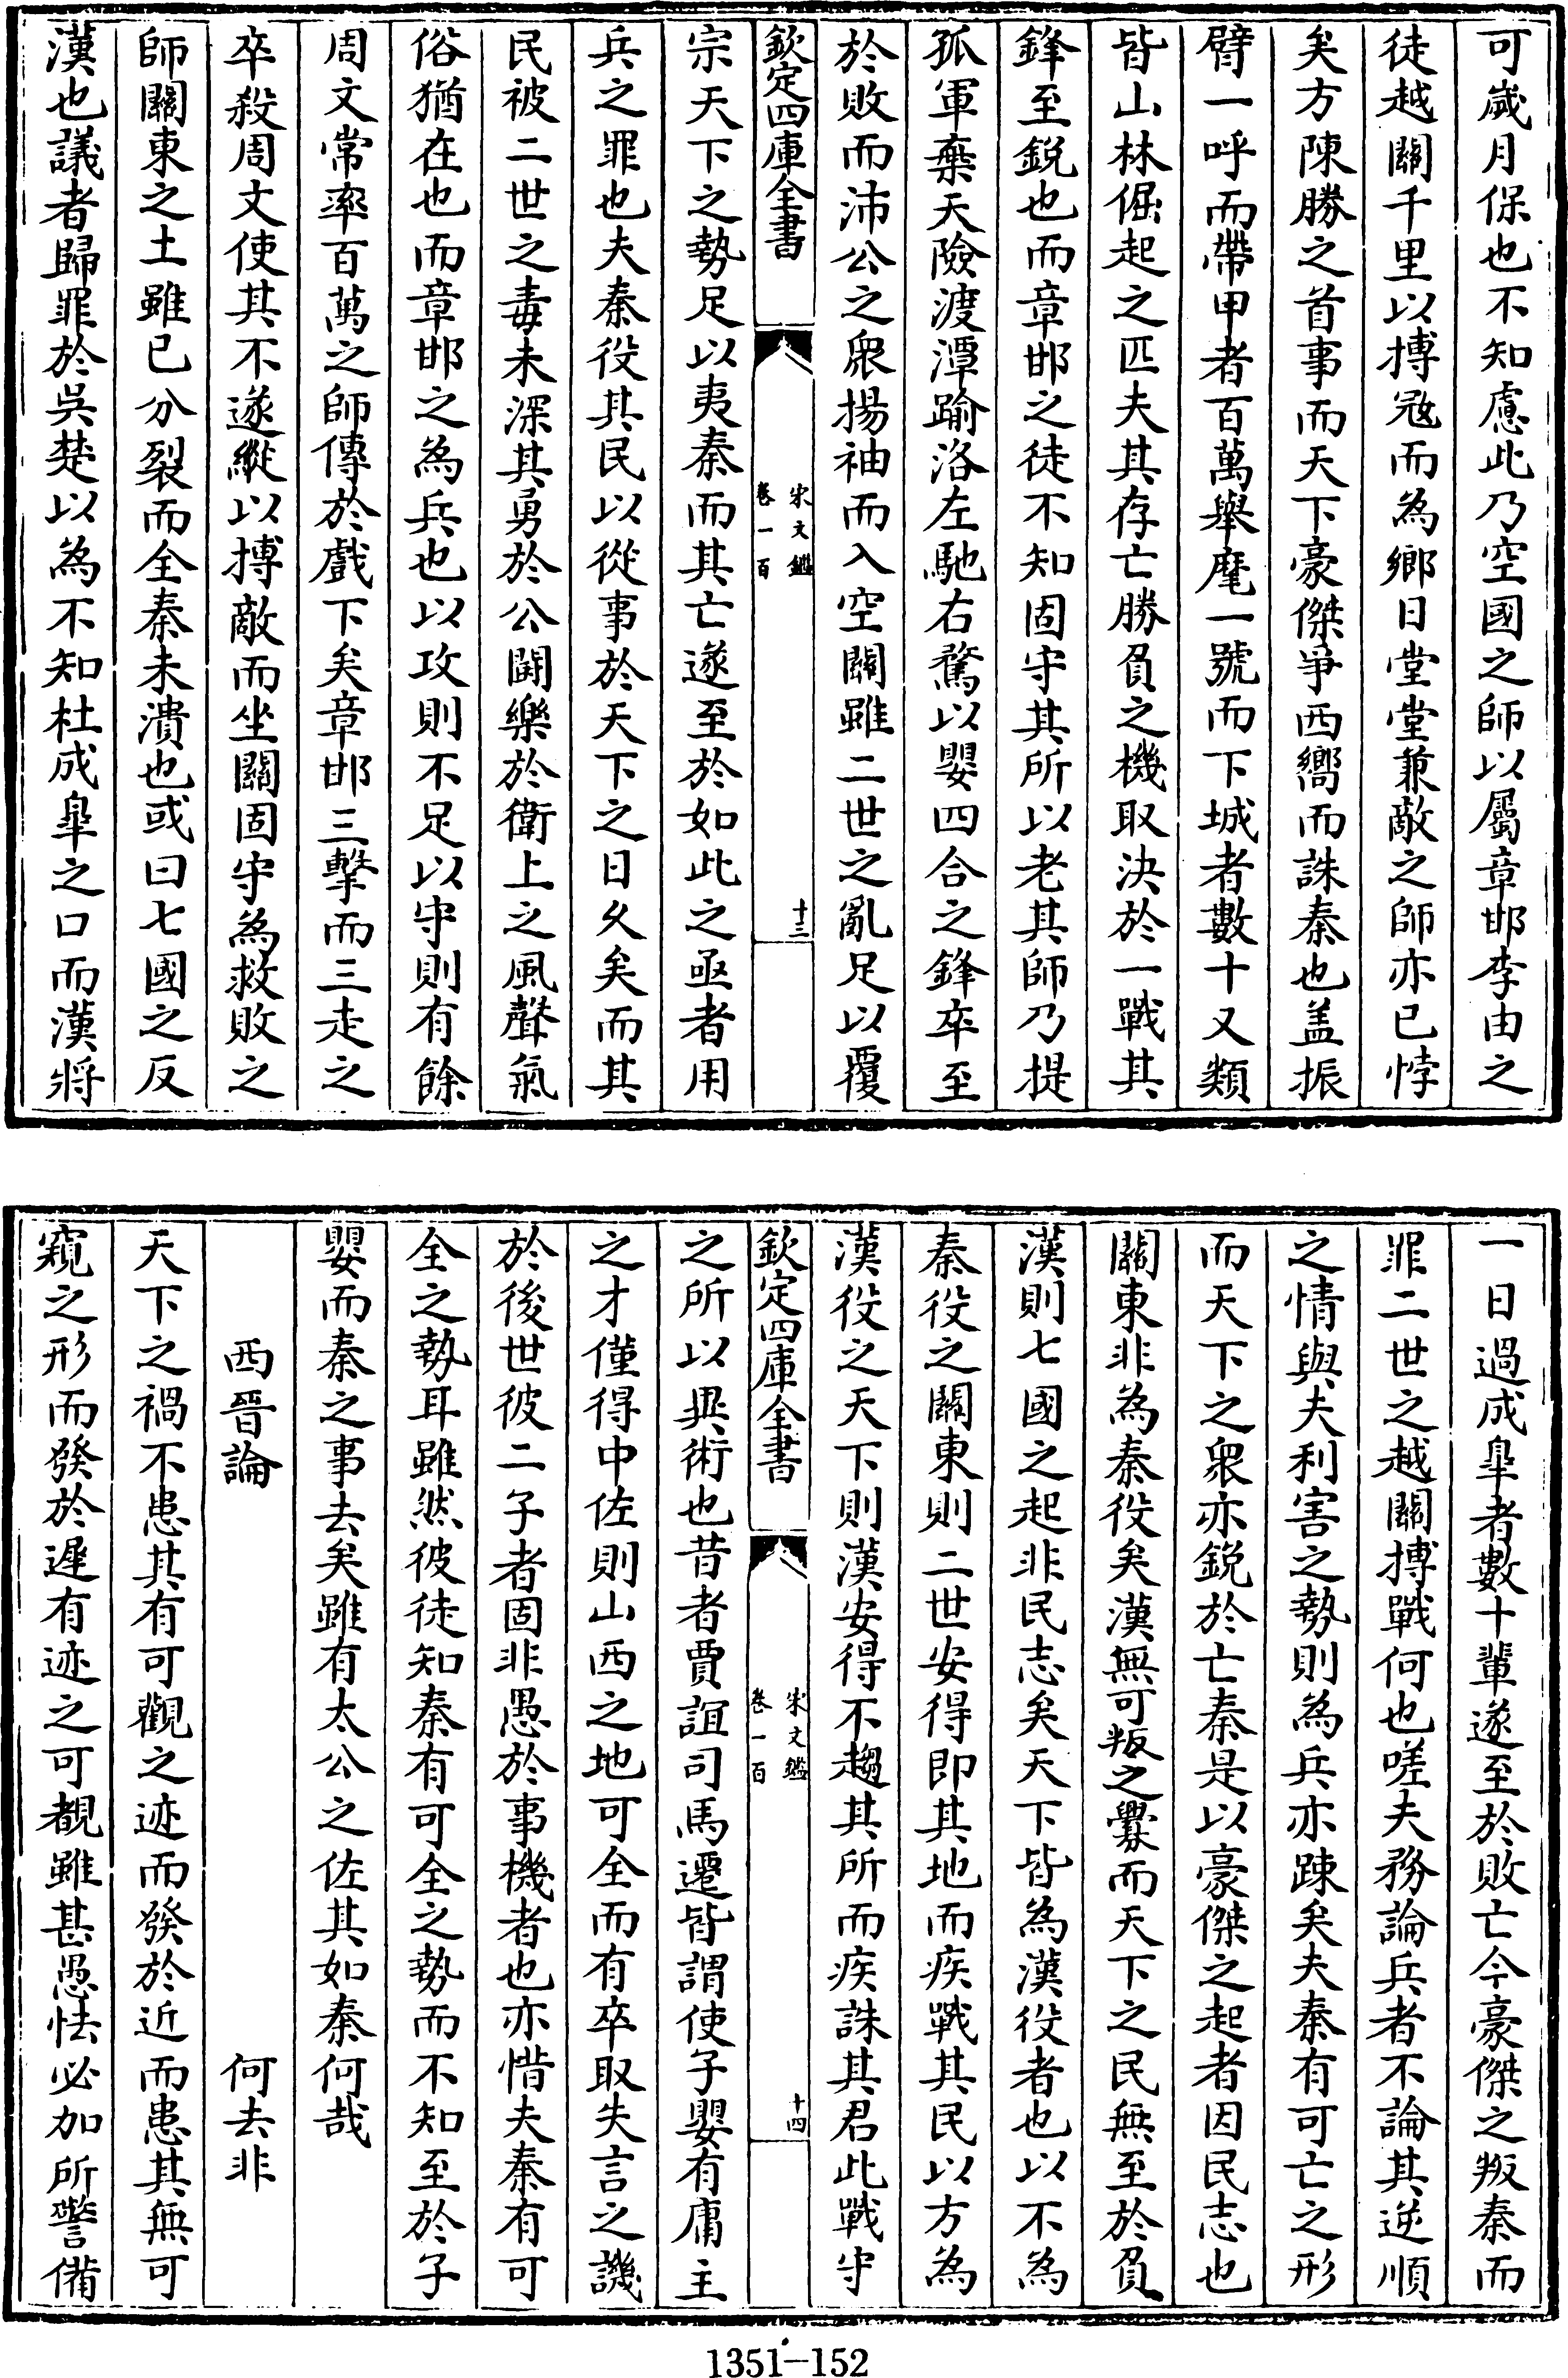 可嵗月保也不知慮此乃空國之師以屬章邯李由之
徒越關千里以搏冦而為鄉日堂堂兼敵之師亦已悖
矣方陳勝之首事而天下豪傑爭西嚮而誅秦也盖振
臂一呼而帶甲者百萬舉麾一號而下城者數十又類
皆山林倔起之匹夫其存亡勝負之機取決於一戰其
鋒至銳也而章邯之徒不知固守其所以老其師乃提
孤軍棄天險渡潭踰洛左馳右騖以嬰四合之鋒卒至
於敗而沛公之衆揚袖而入空關雖二世之亂足以覆
欽定四庫全書
宋文鑑
卷一百
十三
宗天下之勢足以夷秦而其亡遂至於如此之亟者用
兵之罪也夫秦役其民以從事於天下之日乆矣而其
民被二世之毒未深其勇於公鬪樂於衛上之風聲氣
俗猶在也而章邯之為兵也以攻則不足以守則有餘
周文常率百萬之師傅於戲下矣章邯三擊而三走之
卒殺周文使其不遂縱以搏敵而坐關固守為救敗之
師關東之土雖已分裂而全秦未潰也或曰七國之反
漢也議者歸罪於吳楚以為不知杜成臯之口而漢將
一日過成臯者數十輩遂至於敗亡今豪傑之叛秦而
罪二世之越關搏戰何也嗟夫務論兵者不論其逆順
之情與夫利害之勢則為兵亦踈矣夫秦有可亡之形
而天下之衆亦銳於亡秦是以豪傑之起者因民志也
關東非為秦役矣漢無可叛之釁而天下之民無至於負
漢則七國之起非民志矣天下皆為漢役者也以不為
秦役之關東則二世安得即其地而疾戰其民以方為
漢役之天下則漢安得不趨其所而疾誅其君此戰守
欽定四庫全書
宋文鑑
卷一百
十四
之所以異術也昔者賈誼司馬遷皆謂使子嬰有庸主
之才僅得中佐則山西之地可全而有卒取失言之譏
於後世彼二子者固非愚於事機者也亦惜夫秦有可
全之勢耳雖然彼徒知秦有可全之勢而不知至於子
嬰而秦之事去矣雖有太公之佐其如秦何哉
西晉論 何去非
天下之禍不患其有可觀之迹而發於近而患其無可
窺之形而發於遲有迹之可覩雖甚愚怯必加所警備
1351-152